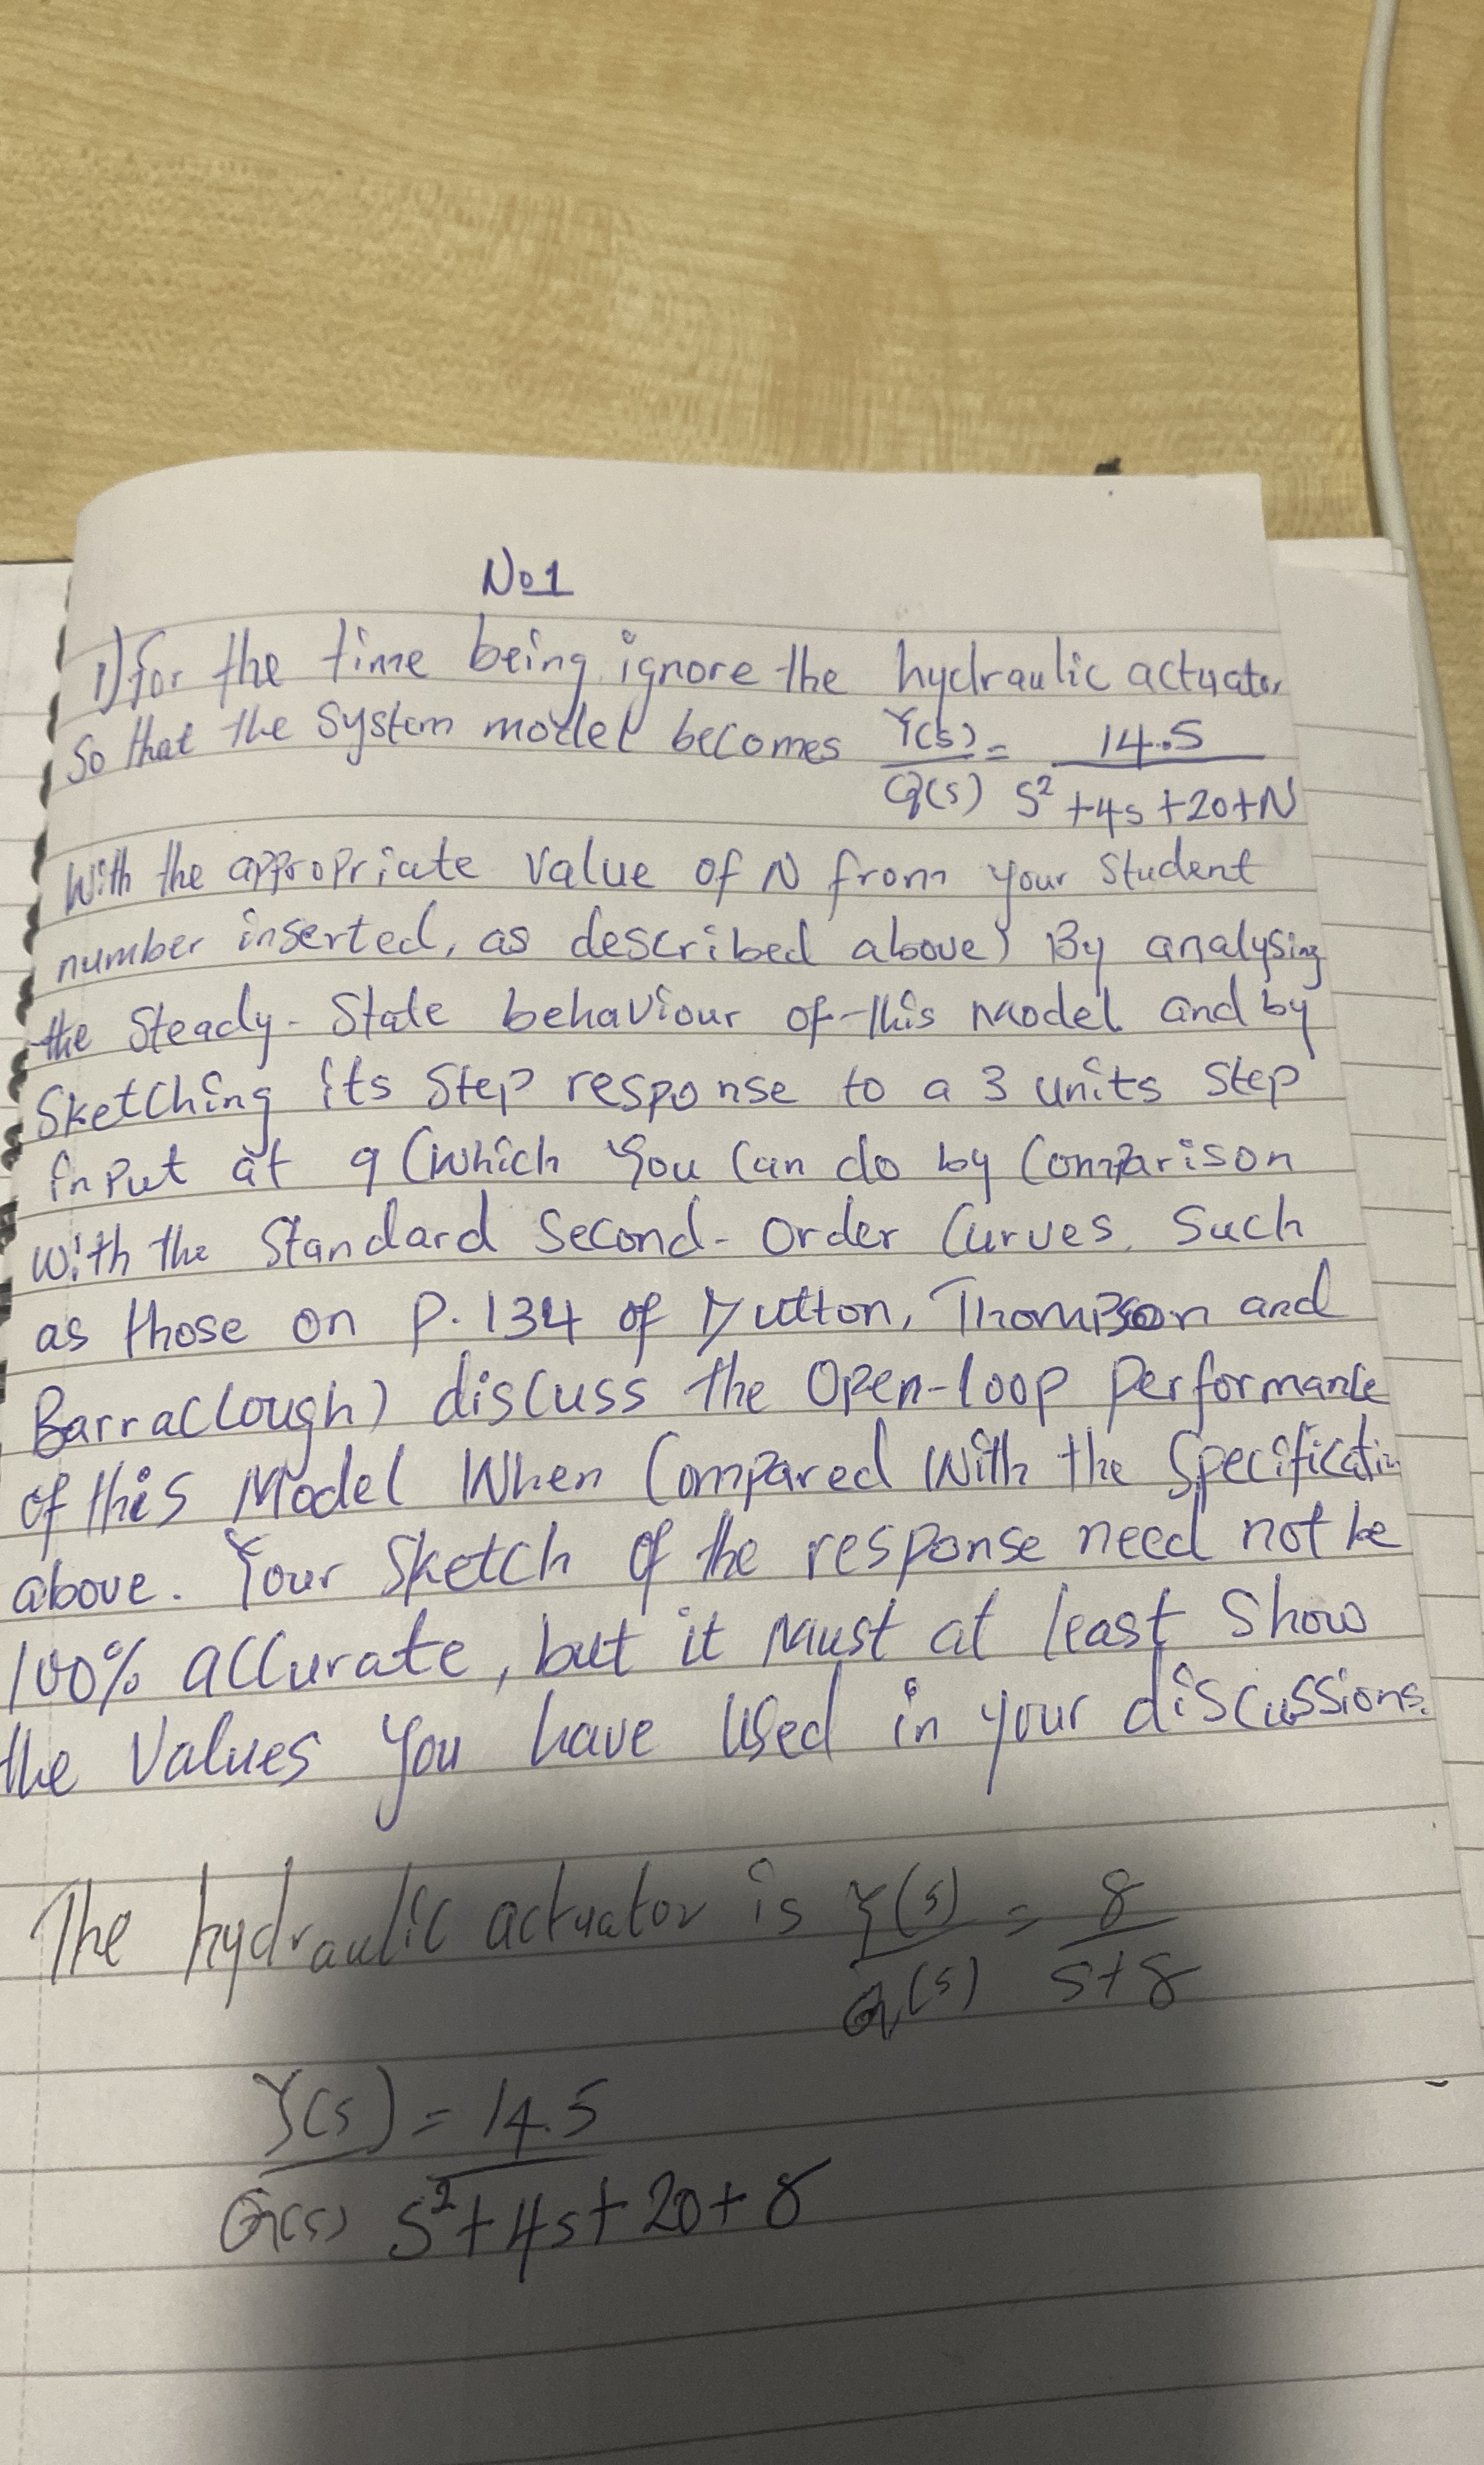 No1
1) for the time being ignore the hydraulic actuator
So that the System model becomes Y(s)/Q(s) = 14.5/S² +4s +20+N
With the appropriate value of N from your Student
number inserted, as described above) By analysing
the Steady-State behaviour of this model and by
Sketching its Step response to a 3 units Step
input at q (which You Can do by Comparison
With the Standard Second-Order Curves, Such
as those on P.134 of Dutton, Thompson and
Barraclough) discuss the Open-loop Performance
of this Model When Compared With the Specification
above. Your Sketch of the response need not be
100% accurate, but it Must at least Show
the Values You have Used in your discussions.
The hydraulic actuator is Y(s)/Q(s) = 8/S+8
Y(s)/Q(s) = 14.5/S²+4s+20+8